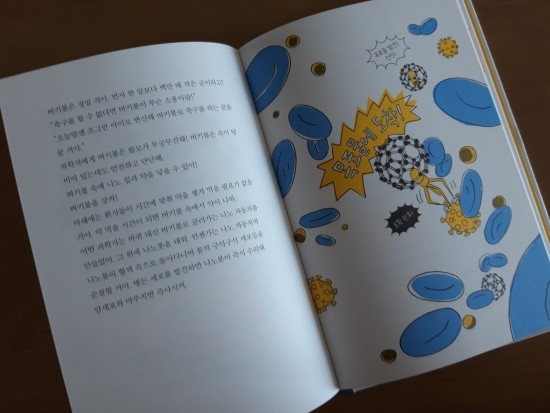 버키볼은 정말 작아. 먼지 한 톨보다 백만 배 작은 공이라고!
"축구를 할 수 없다면 버키볼이 무슨 소용이람!"
"오늘밤엔 조그만 아이로 변신해 버키볼로 축구를 하는 꿈을
꿀 거야."
과학자에게 버키볼은 쓸모가 무궁무진해! 버키볼은 속이 텅
비어 있는데도 안전하고 단단해.
버키볼 속에 나노 칩과 약을 넣을 수 있어!
버키볼을 삼켜!
미래에는 환자들이 시간에 맞춰 약을 챙겨 먹을 필요가 없을
거야. 약 먹을 시간이 되면 버키볼 속에서 약이 나와.
어떤 과학자는 바퀴 대신 버키볼로 굴러가는 나노 자동차를
만들었어. 그 위에 나노봇을 태워. 언젠가는 나노 자동차와
나노봇이 혈액 속으로 돌아다니며 몸의 구석구석 세포들을
순찰할 거야. 병든 세포를 발견하면 나노봇이 즉시 수리해.
암세포와 마주치면 즉사시켜.
몸속에 도착!